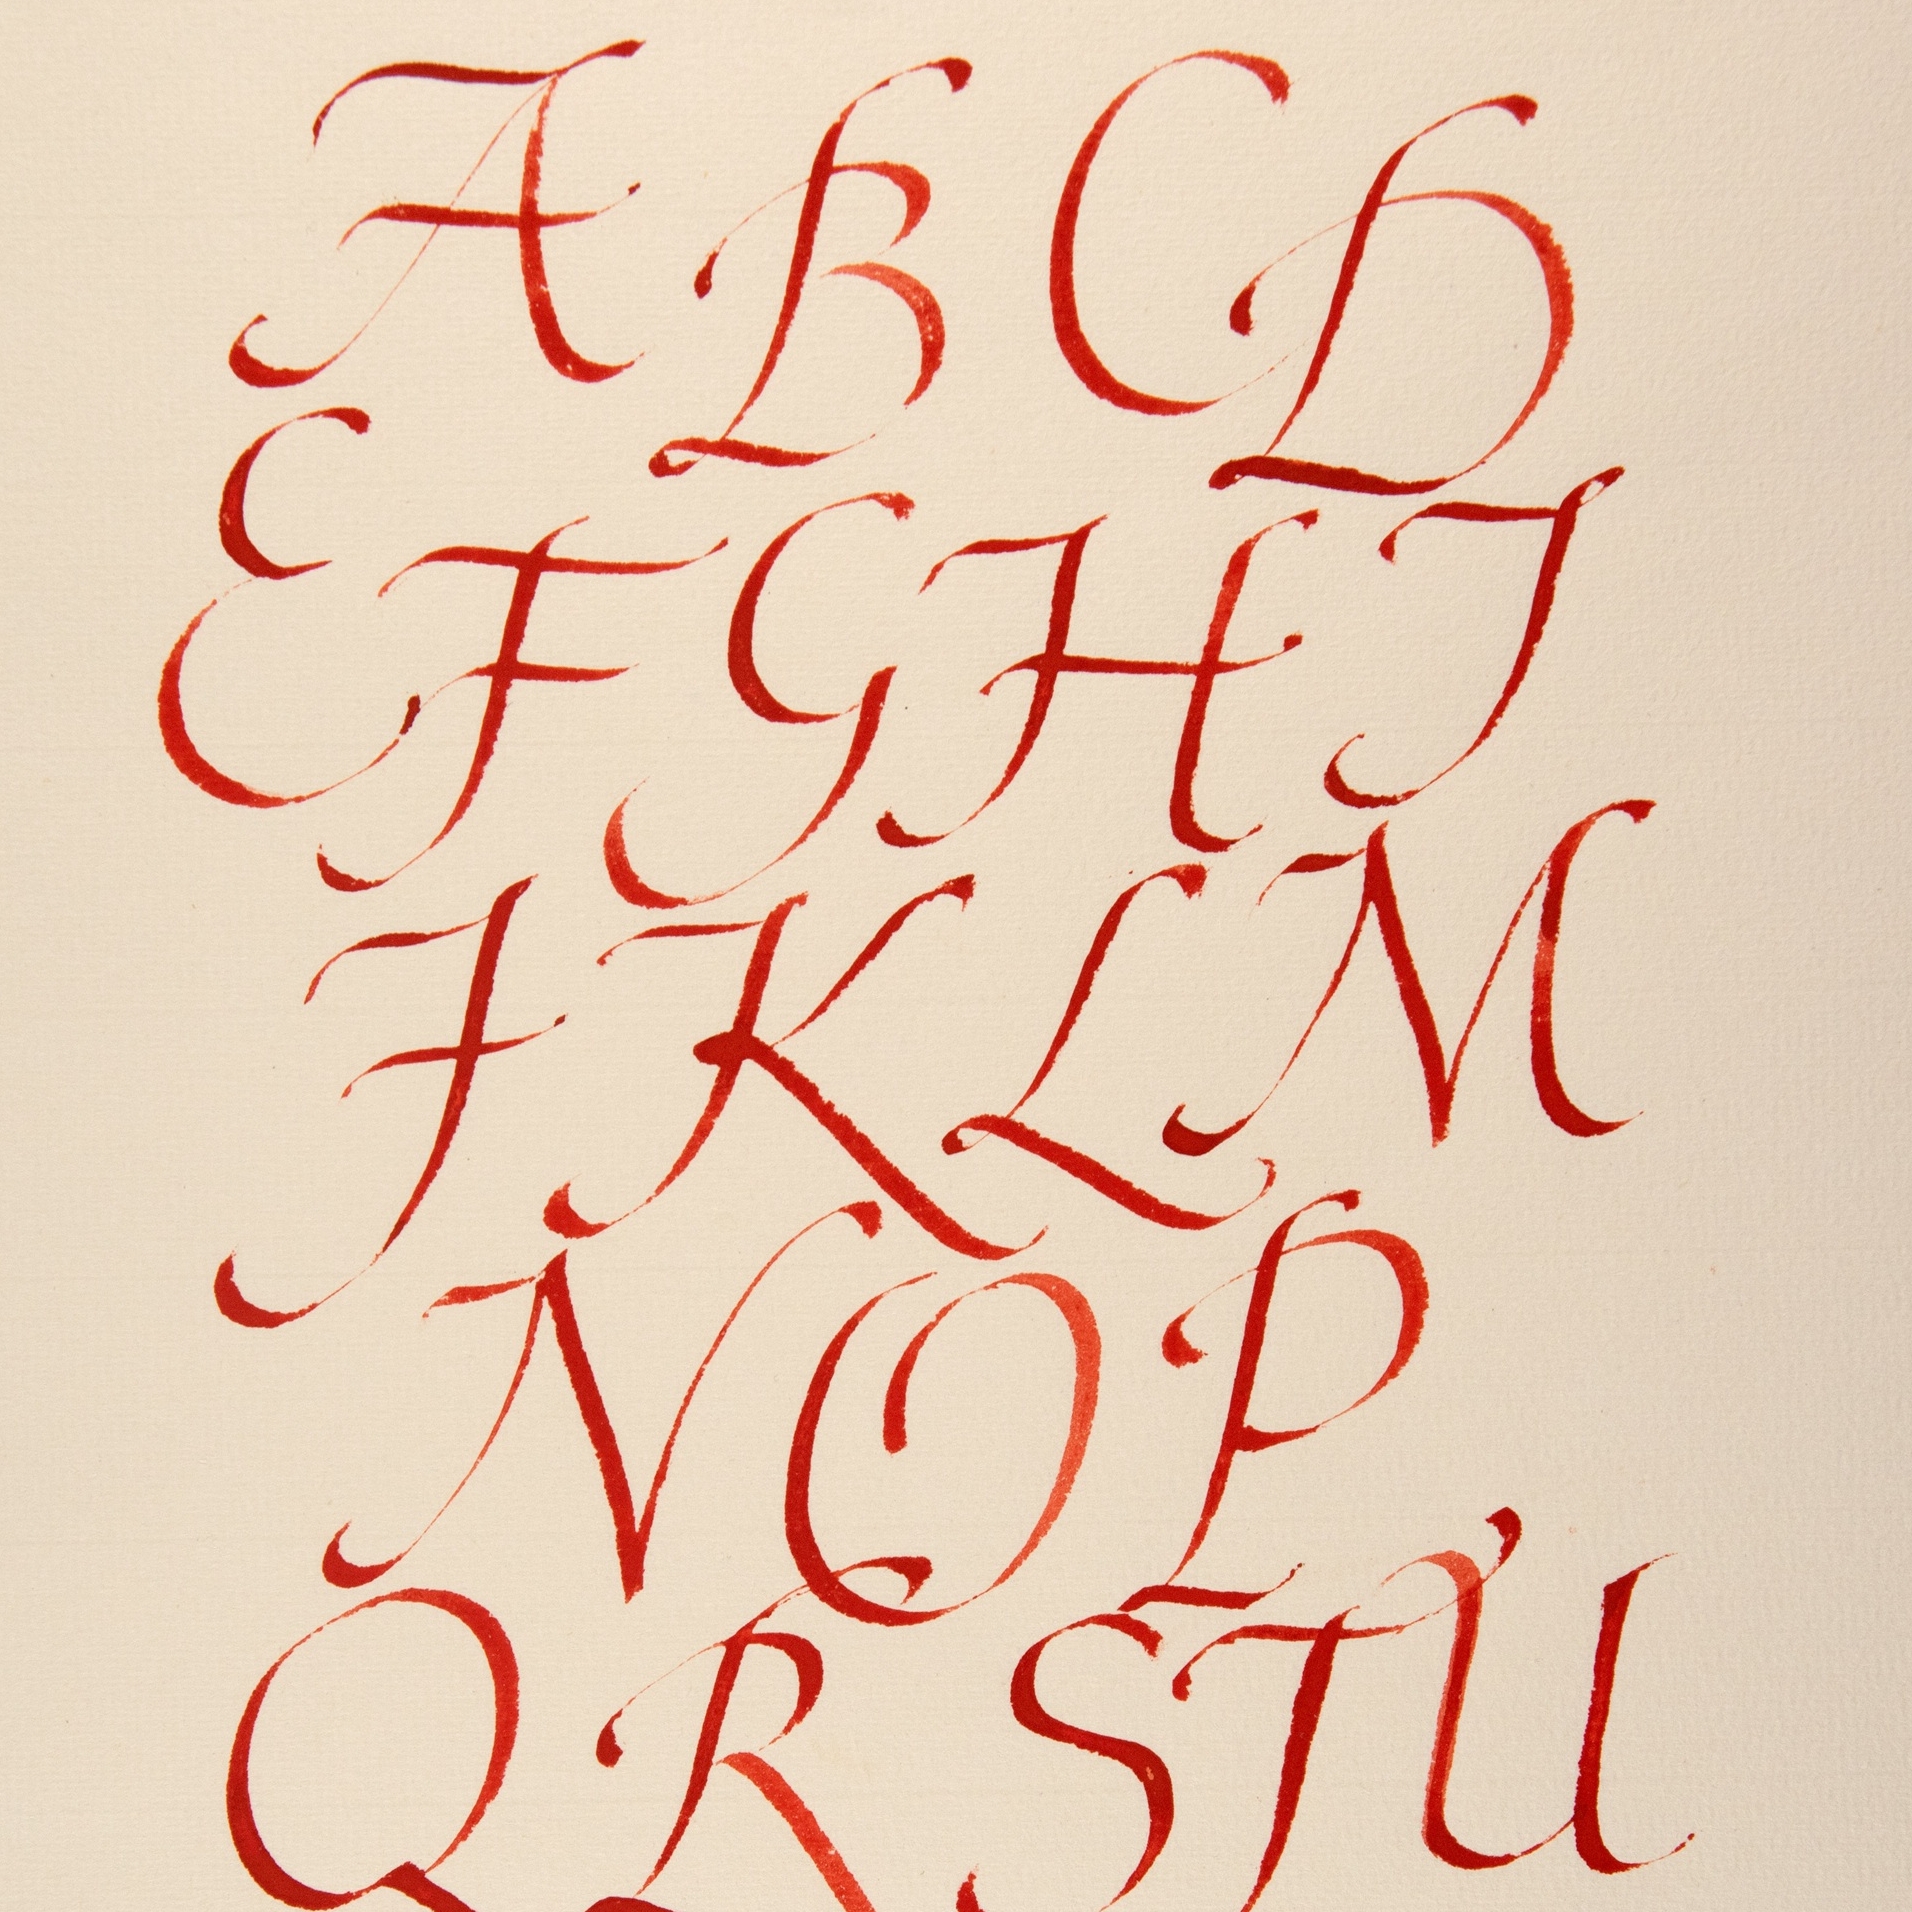 A B C D
E F G H I
J K L M
N O P
Q R S T U